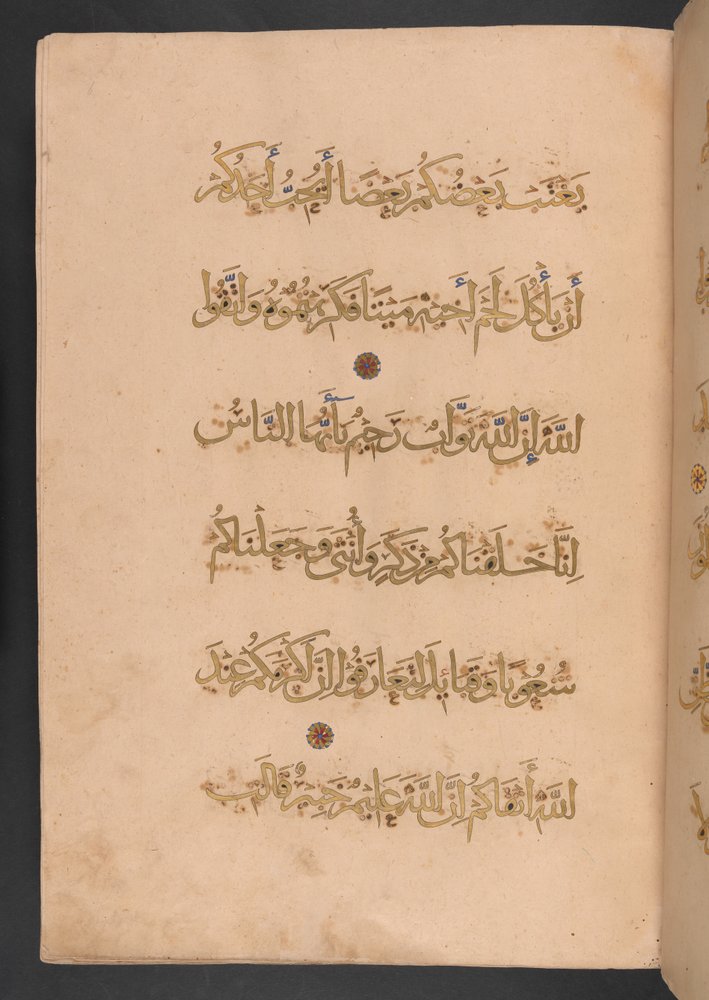 يَغْتَب بَعْضُكُم بَعْضًا أَيُحِبُّ أَحَدُكُمْ
أَن يَأْكُلَ لَحْمَ أَخِيهِ مَيْتًا فَكَرِهْتُمُوهُ وَاتَّقُوا
اللَّهَ إِنَّ اللَّهَ تَوَّابٌ رَحِيمٌ يَأَيُّهَا النَّاسُ
إِنَّا خَلَقْنَاكُم مِن ذَكَرٍ وَأُنْثَى وَجَعَلْنَاكُمْ
شُعُوبًا وَقَبَائِلَ لِتَعَارَفُوا إِنَّ أَكْرَمَكُمْ عِنْدَ
اللَّهِ أَتْقَاكُمْ إِنَّ اللَّهَ عَلِيمٌ خَبِيرٌ قَالَت